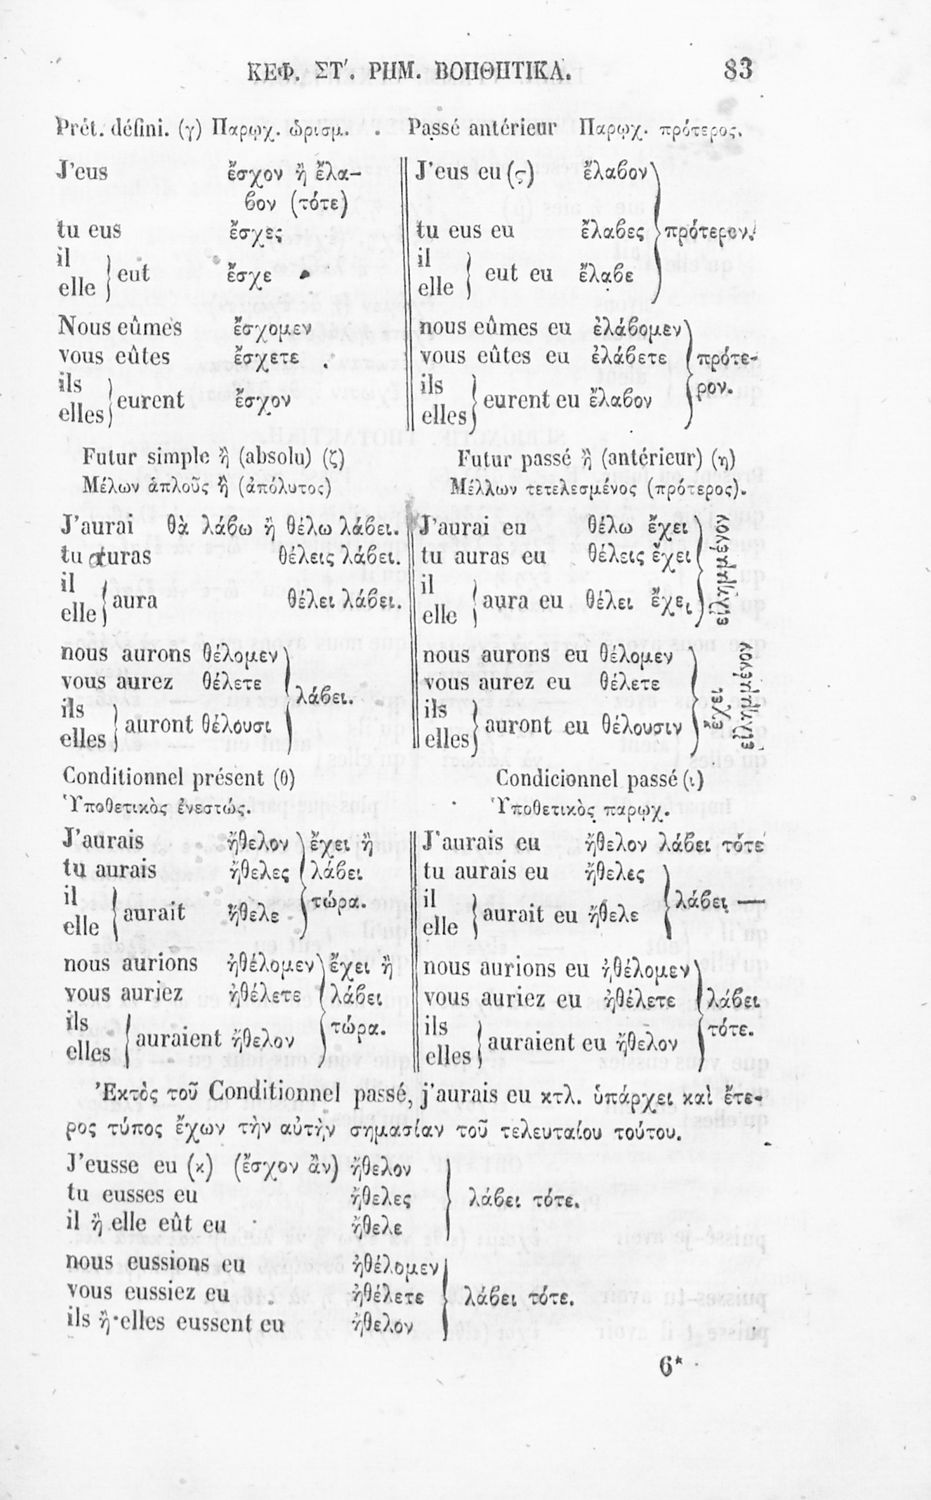 ΚΕΦ. ΣΤ΄. ΡΗΜ. ΒΟΗΘΗΤΙΚΑ. 83
Prét. défini. (γ) Παρῳχ. ὡρισμ.
J'eus ἔσχον ἢ ἔλα-
βον (τότε)
tu eus ἔσχες
il
elle } eut ἔσχε
Nous eûmes ἔσχομεν
vous eûtes ἔσχετε
ils
elles } eurent ἔσχον
Passé antérieur Παρῳχ. πρότερος.
J'eus eu (ς) ἔλαβον
tu eus eu ἔλαβες } πρότερον.
il
elle } eut eu ἔλαβε
nous eûmes eu ἐλάβομεν
vous eûtes eu ἐλάβετε } πρότε-
ρον.
ils
elles } eurent eu ἔλαβον
Futur simple ἢ (absolu) (ζ)
Μέλων ἁπλοῦς ἢ (ἀπόλυτος)
J'aurai θὰ λάβω ἢ θέλω λάβει.
tu auras θέλεις λάβει.
il
elle } aura θέλει λάβει.
nous aurons θέλομεν
vous aurez θέλετε } λάβει.
ils
elles } auront θέλουσι
Futur passé ἢ (antérieur) (η)
Μέλλων τετελεσμένος (πρότερος).
J'aurai eu θέλω ἔχει
tu auras eu θέλεις ἔχει } εἰλημμένον
il
elle } aura eu θέλει ἔχει
nous aurons eu θέλομεν
vous aurez eu θέλετε } ἔχει
εἰλημμένον
ils
elles } auront eu θέλουσιν
Conditionnel présent (θ)
Ὑποθετικὸς ἐνεστώς.
J'aurais ἤθελον } ἔχει ἢ
tu aurais ἤθελες λάβει
il
elle } aurait ἤθελε τώρα.
nous aurions ἠθέλομεν } ἔχει ἢ
vous auriez ἠθέλετε λάβει
ils
elles } auraient ἤθελον τώρα.
Condicionnel passé (ι)
Ὑποθετικὸς παρῳχ.
J'aurais eu ἤθελον λάβει τότε
tu aurais eu ἤθελες
il
elle } aurait eu ἤθελε } λάβει —
nous aurions eu ἠθέλομεν
vous auriez eu ἠθέλετε } λάβει
τότε.
ils
elles } auraient eu ἤθελον
Ἐκτὸς τοῦ Conditionnel passé, j'aurais eu κτλ. ὑπάρχει καὶ ἕτε-
ρος τύπος ἔχων τὴν αὐτὴν σημασίαν τοῦ τελευταίου τούτου.
J'eusse eu (κ) (ἔσχον ἂν) ἤθελον
tu eusses eu ἤθελες } λάβει τότε.
il ἢ elle eût eu ἤθελε
nous eussions eu ἠθέλομεν
vous eussiez eu ἠθέλετε } λάβει τότε.
ils ἢ elles eussent eu ἤθελον
6*